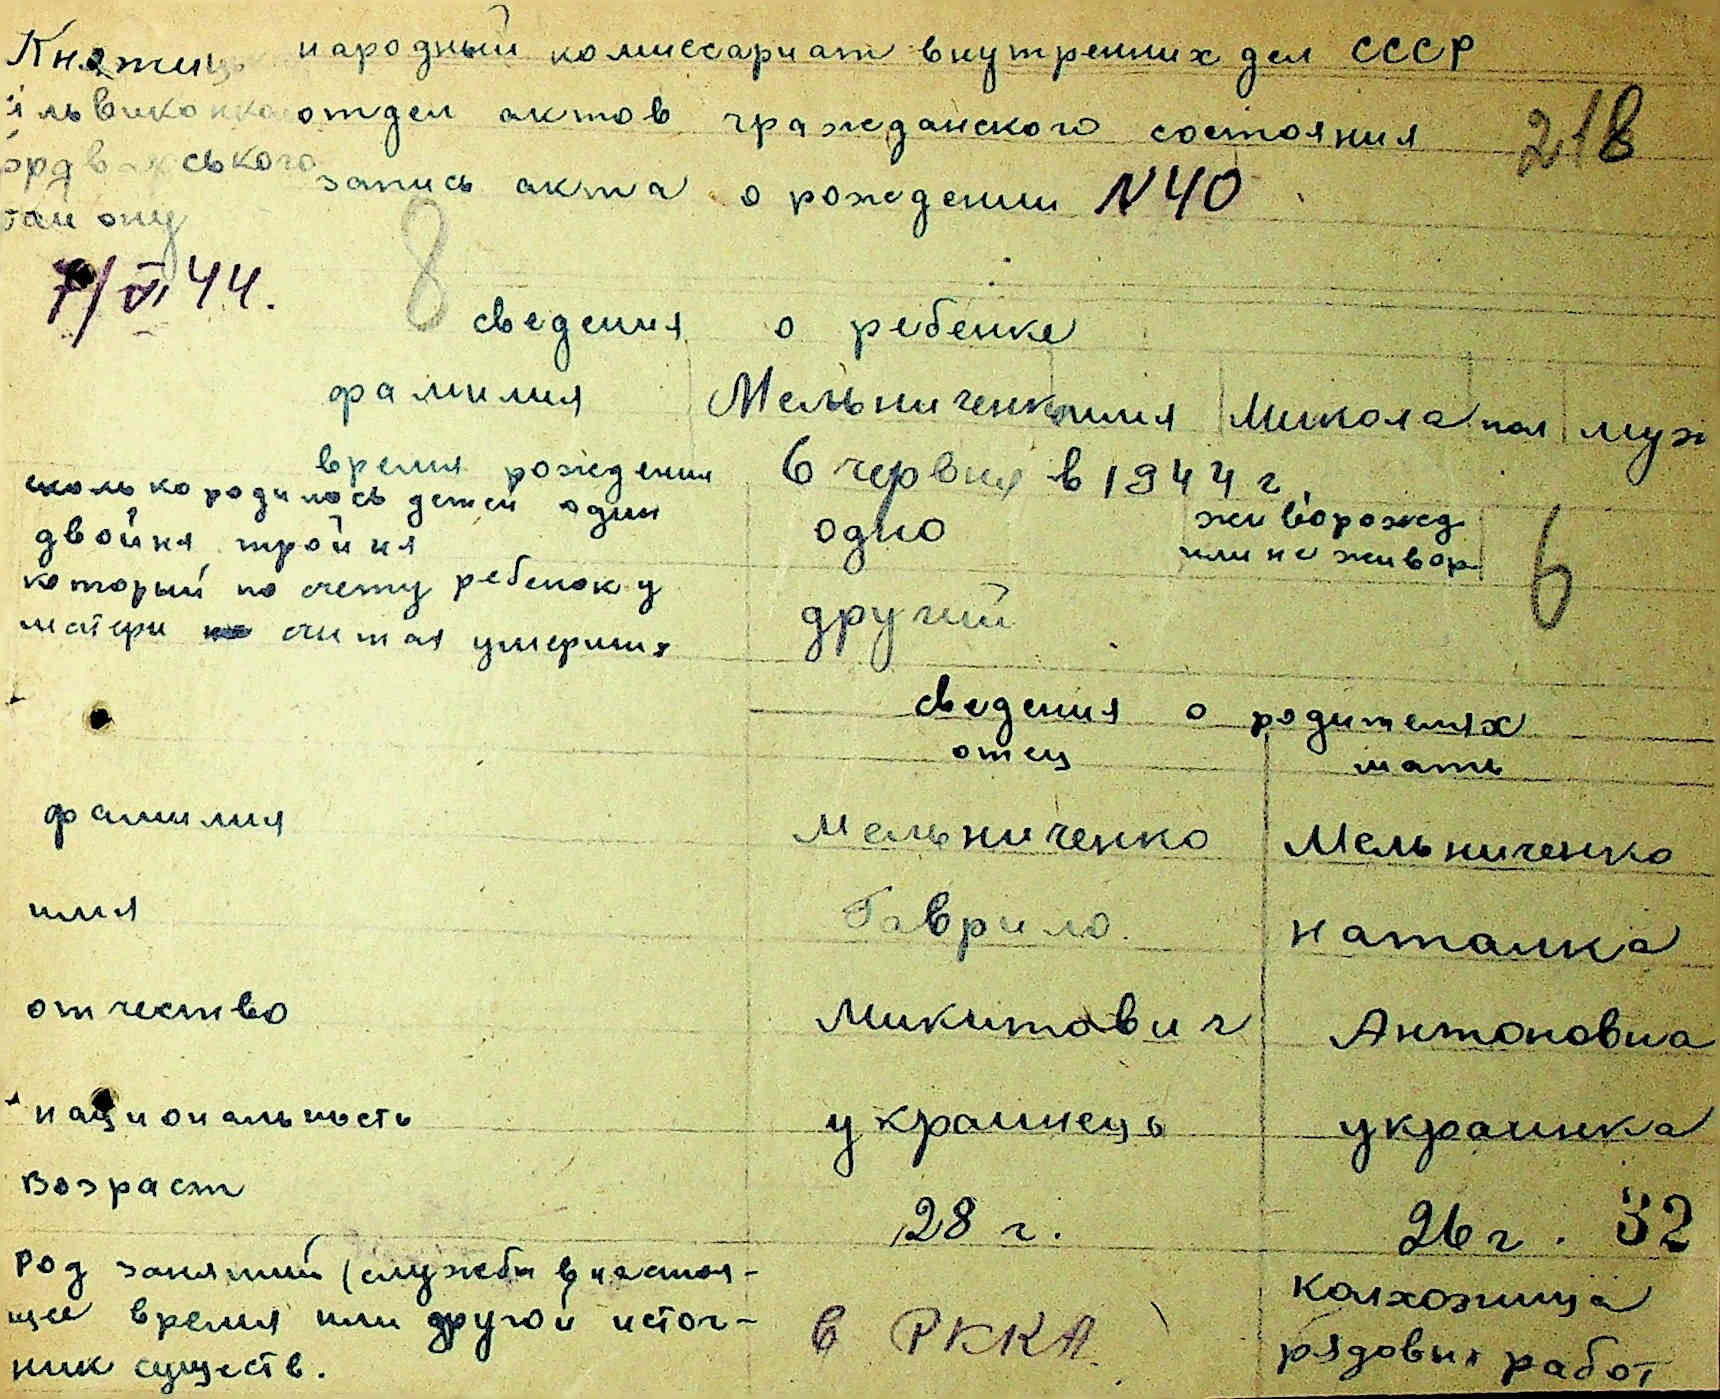 Княжиць
народный комиссариат внутренних дел СССР
отдел актов гражданского состояния
218
ського
запись акта о рождении N40
району
7/VI 44.
8
сведения о ребенке
фамилия Мельниченко имя Микола пол муж
время рождения 6 червня в 1944 г.
сколько родилось детей один
двойня тройня
одно
живорожд
или не живор
который по счету ребенок у
матери не считая умерших
другий
сведения о родителях
отец мать
фамилия Мельниченко Мельниченко
имя Гаврило Наталка
отчество Микитович Антоновна
национальность украинець украинка
Возраст 28 г. 26 г. 32
Род занятий (службы в настоя-
щее время или другой источ-
ник существ.
в РККА
колхозница
рядовых работ